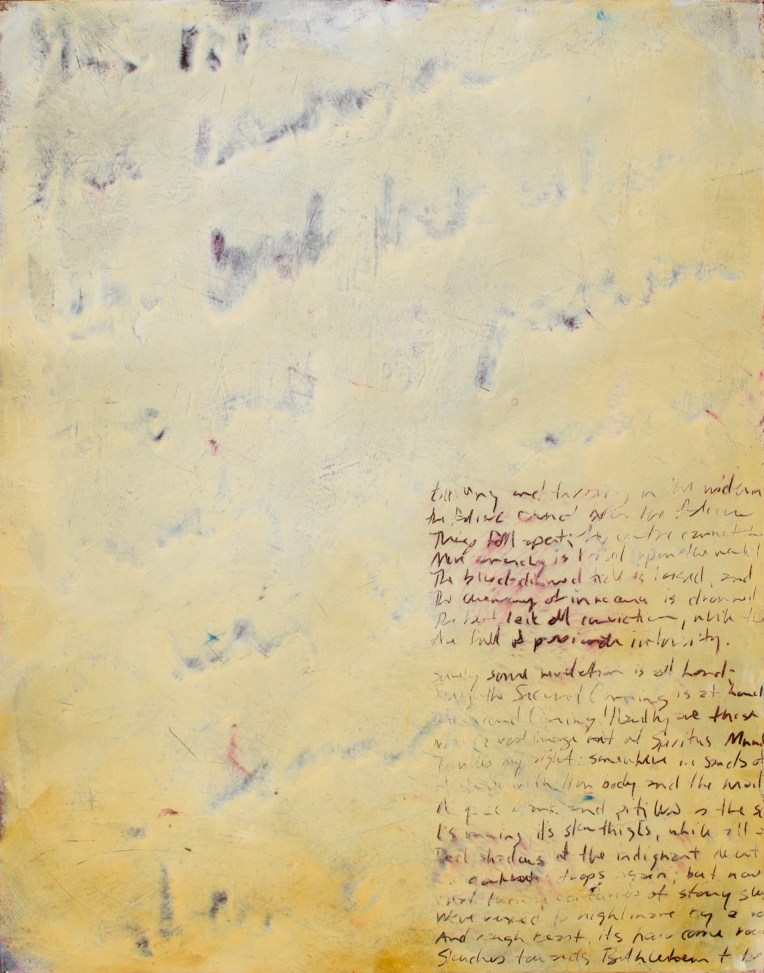 turning and turning in the widen
the falcon cannot hear the falcon
Things fall apart; the centre cannot ho
Mere anarchy is loosed upon the world
The blood-dimmed tide is loosed, and
The ceremony of innocence is drowned
The best lack all conviction, while the
Are full of passionate intensity.
surely some revelation is at hand;
Surely the Second Coming is at hand
The Second Coming! Hardly are those
a vast image out of Spiritus Mun
Troubles my sight: somewhere in sands of
A shape with lion body and the head
A gaze blank and pitiless as the s
Is moving its slow thighs, while all
Reel shadows of the indignant desert
The darkness drops again; but now
that twenty centuries of stony sle
Were vexed to nightmare by a ro
And rough beast, its hour come rou
Slouches towards Bethlehem t